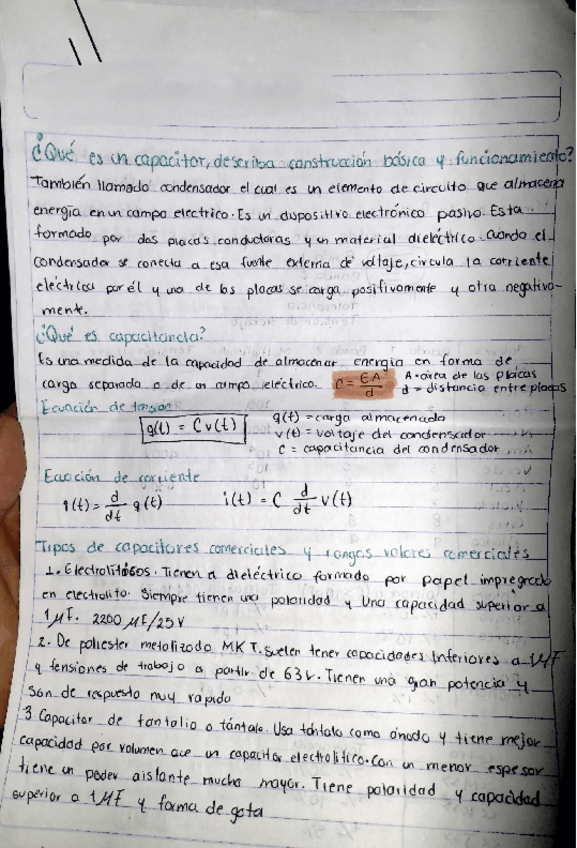 ¿Qué es un capacitor, describa construcción básica y funcionamiento?
También llamado condensador el cual es un elemento de circuito que almacena
energía en un campo electrico. Es un dispositivo electrónico pasivo. Esta
formado por dos placas conductoras y un material dieléctrico. Cuando el
condensador se conecta a esa fuente externa de voltaje, circula la corriente
eléctrica por él y una de las placas se carga positivamente y otra negativa-
mente.
¿Qué es capacitancia?
Es una medida de la capacidad de almacenar energia en forma de
carga separada o de un campo eléctrico. C = EA/d A = área de las placas
d = distancia entre placas
Ecuación de tension
q(t) = Cv(t)
q(t) = carga almacenada
v(t) = voltaje del condensador
C = capacitancia del condensador
Ecuación de corriente
i(t) = d/dt q(t) i(t) = C d/dt v(t)
Tipos de capacitores comerciales y rangos valores comerciales
1. Electrolíticos. Tienen a dieléctrico formado por papel impregnado
en electrolito. Siempre tienen una polaridad y una capacidad superior a
1 μF. 2200 μF/25V
2. De poliester metalizado MKT. Suelen tener capacidades inferiores a 1μF
y tensiones de trabajo a partir de 63v. Tienen una gran potencia y
son de respuesta muy rapida
3. Capacitor de tantalio o tántalo. Usa tántalo como ánodo y tiene mejor
capacidad por volumen que un capacitor electrolitico. Con un menor espesor
tiene un poder aislante mucho mayor. Tiene polaridad y capacidad
superior a 1μF y forma de gota